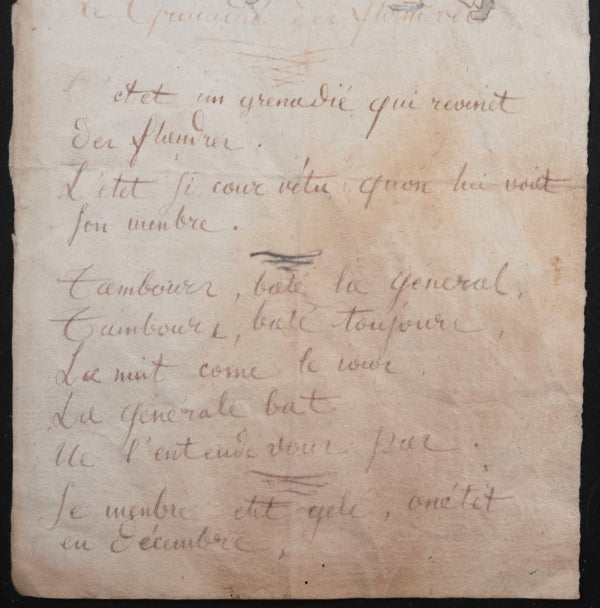 Le Grenadié des flandres
etet un grenadié qui revinet
des flandres.
L'étet si cour vétu quon lui voiet
son menbre.
Tambours, baté la général,
Tambours, baté toujours,
La nuit come le jour.
La générale bat
Ne l'entendé vous pas.
Se menbre etet gelé, onétet
en Décembre,